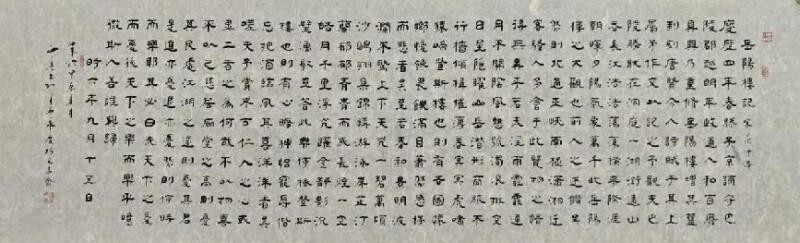 岳陽樓記 宋范仲淹
慶歷四年春滕子京謫守巴
陵郡越明年政通人和百廢
具興乃重修岳陽樓增其舊
制刻唐賢今人詩賦于其上
屬予作文以記之予觀夫巴
陵勝狀在洞庭一湖銜遠山
吞長江浩浩湯湯橫無際涯
朝暉夕陰氣象萬千此岳陽
樓之大觀也前人之述備矣
然則北通巫峽南極瀟湘遷
客騷人多會于此覽物之情
得無異乎若夫霪雨霏霏連
月不開陰風怒號濁浪排空
日星隱曜山岳潛形商旅不
行檣傾楫摧薄暮冥冥虎嘯
猿啼登斯樓也則有去國懷
鄉憂讒畏譏滿目蕭然感極
而悲者矣至若春和景明波
瀾不驚上下天光一碧萬頃
沙鷗翔集錦鱗游泳岸芷汀
蘭郁郁青青而或長煙一空
皓月千里浮光躍金靜影沉
璧漁歌互答此樂何極登斯
樓也則有心曠神怡寵辱偕
忘把酒臨風其喜洋洋者矣
嗟夫予嘗求古仁人之心或
異二者之為何哉不以物喜
不以己悲居廟堂之高則憂
其民處江湖之遠則憂其君
是進亦憂退亦憂然則何時
而樂耶其必曰先天下之憂
而憂後天下之樂而樂乎噫
微斯人吾誰與歸
時六年九月十五日